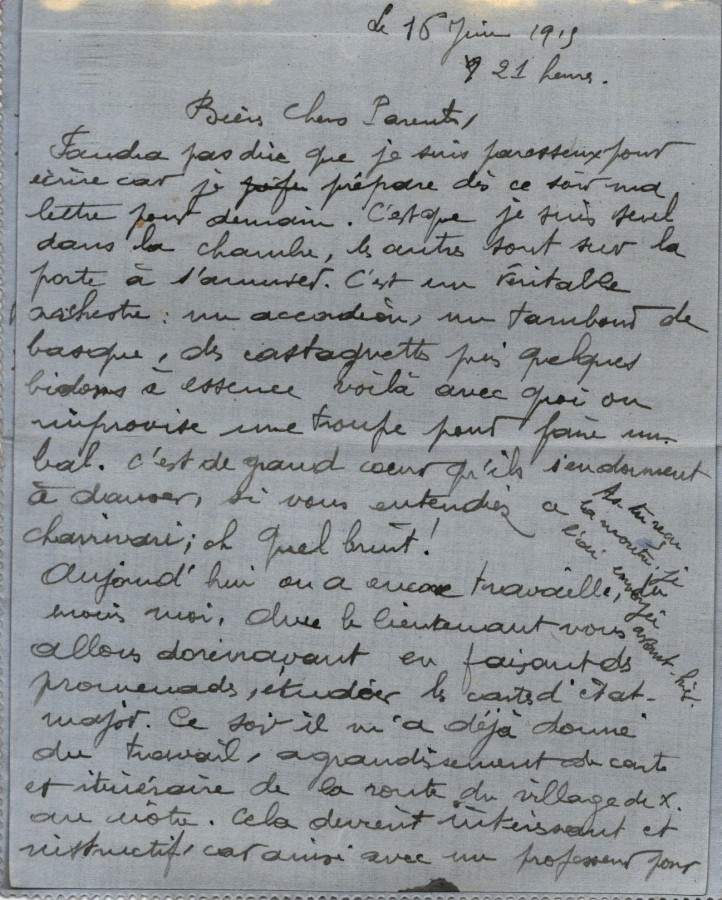 Le 16 Juin 1915
21 heures.
Biens Chers Parents,
Faudra pas dire que je suis paresseux pour
écrire car je prépare dès ce soir ma
lettre pour demain. C'est que je suis seul
dans la chambre, les autres sont sur la
porte à s'amuser. C'est un véritable
orchestre : un accordéon, un tambour de
basque, des castagnettes puis quelques
bidons à essence voilà avec quoi on
improvise une troupe pour faire un
bal. C'est de grand coeur qu'ils s'en donnent
à danser, si vous entendiez ce
charivari ; oh quel bruit !
Aujourd'hui on a encore travaillé,
mois moi, avec le lieutenant nous
allons dorénavant en faisant des
promenades, étudier les cartes d'état-
major. Ce soir il m'a déjà donné
du travail, agrandissement de carte
et itinéraire de la route du village de X.
au nôtre. Cela devient intéressant et
instructif, car ainsi avec un professeur pour
As tu reçu
ta montre. Je
l'ai envoyée
avant-hier.